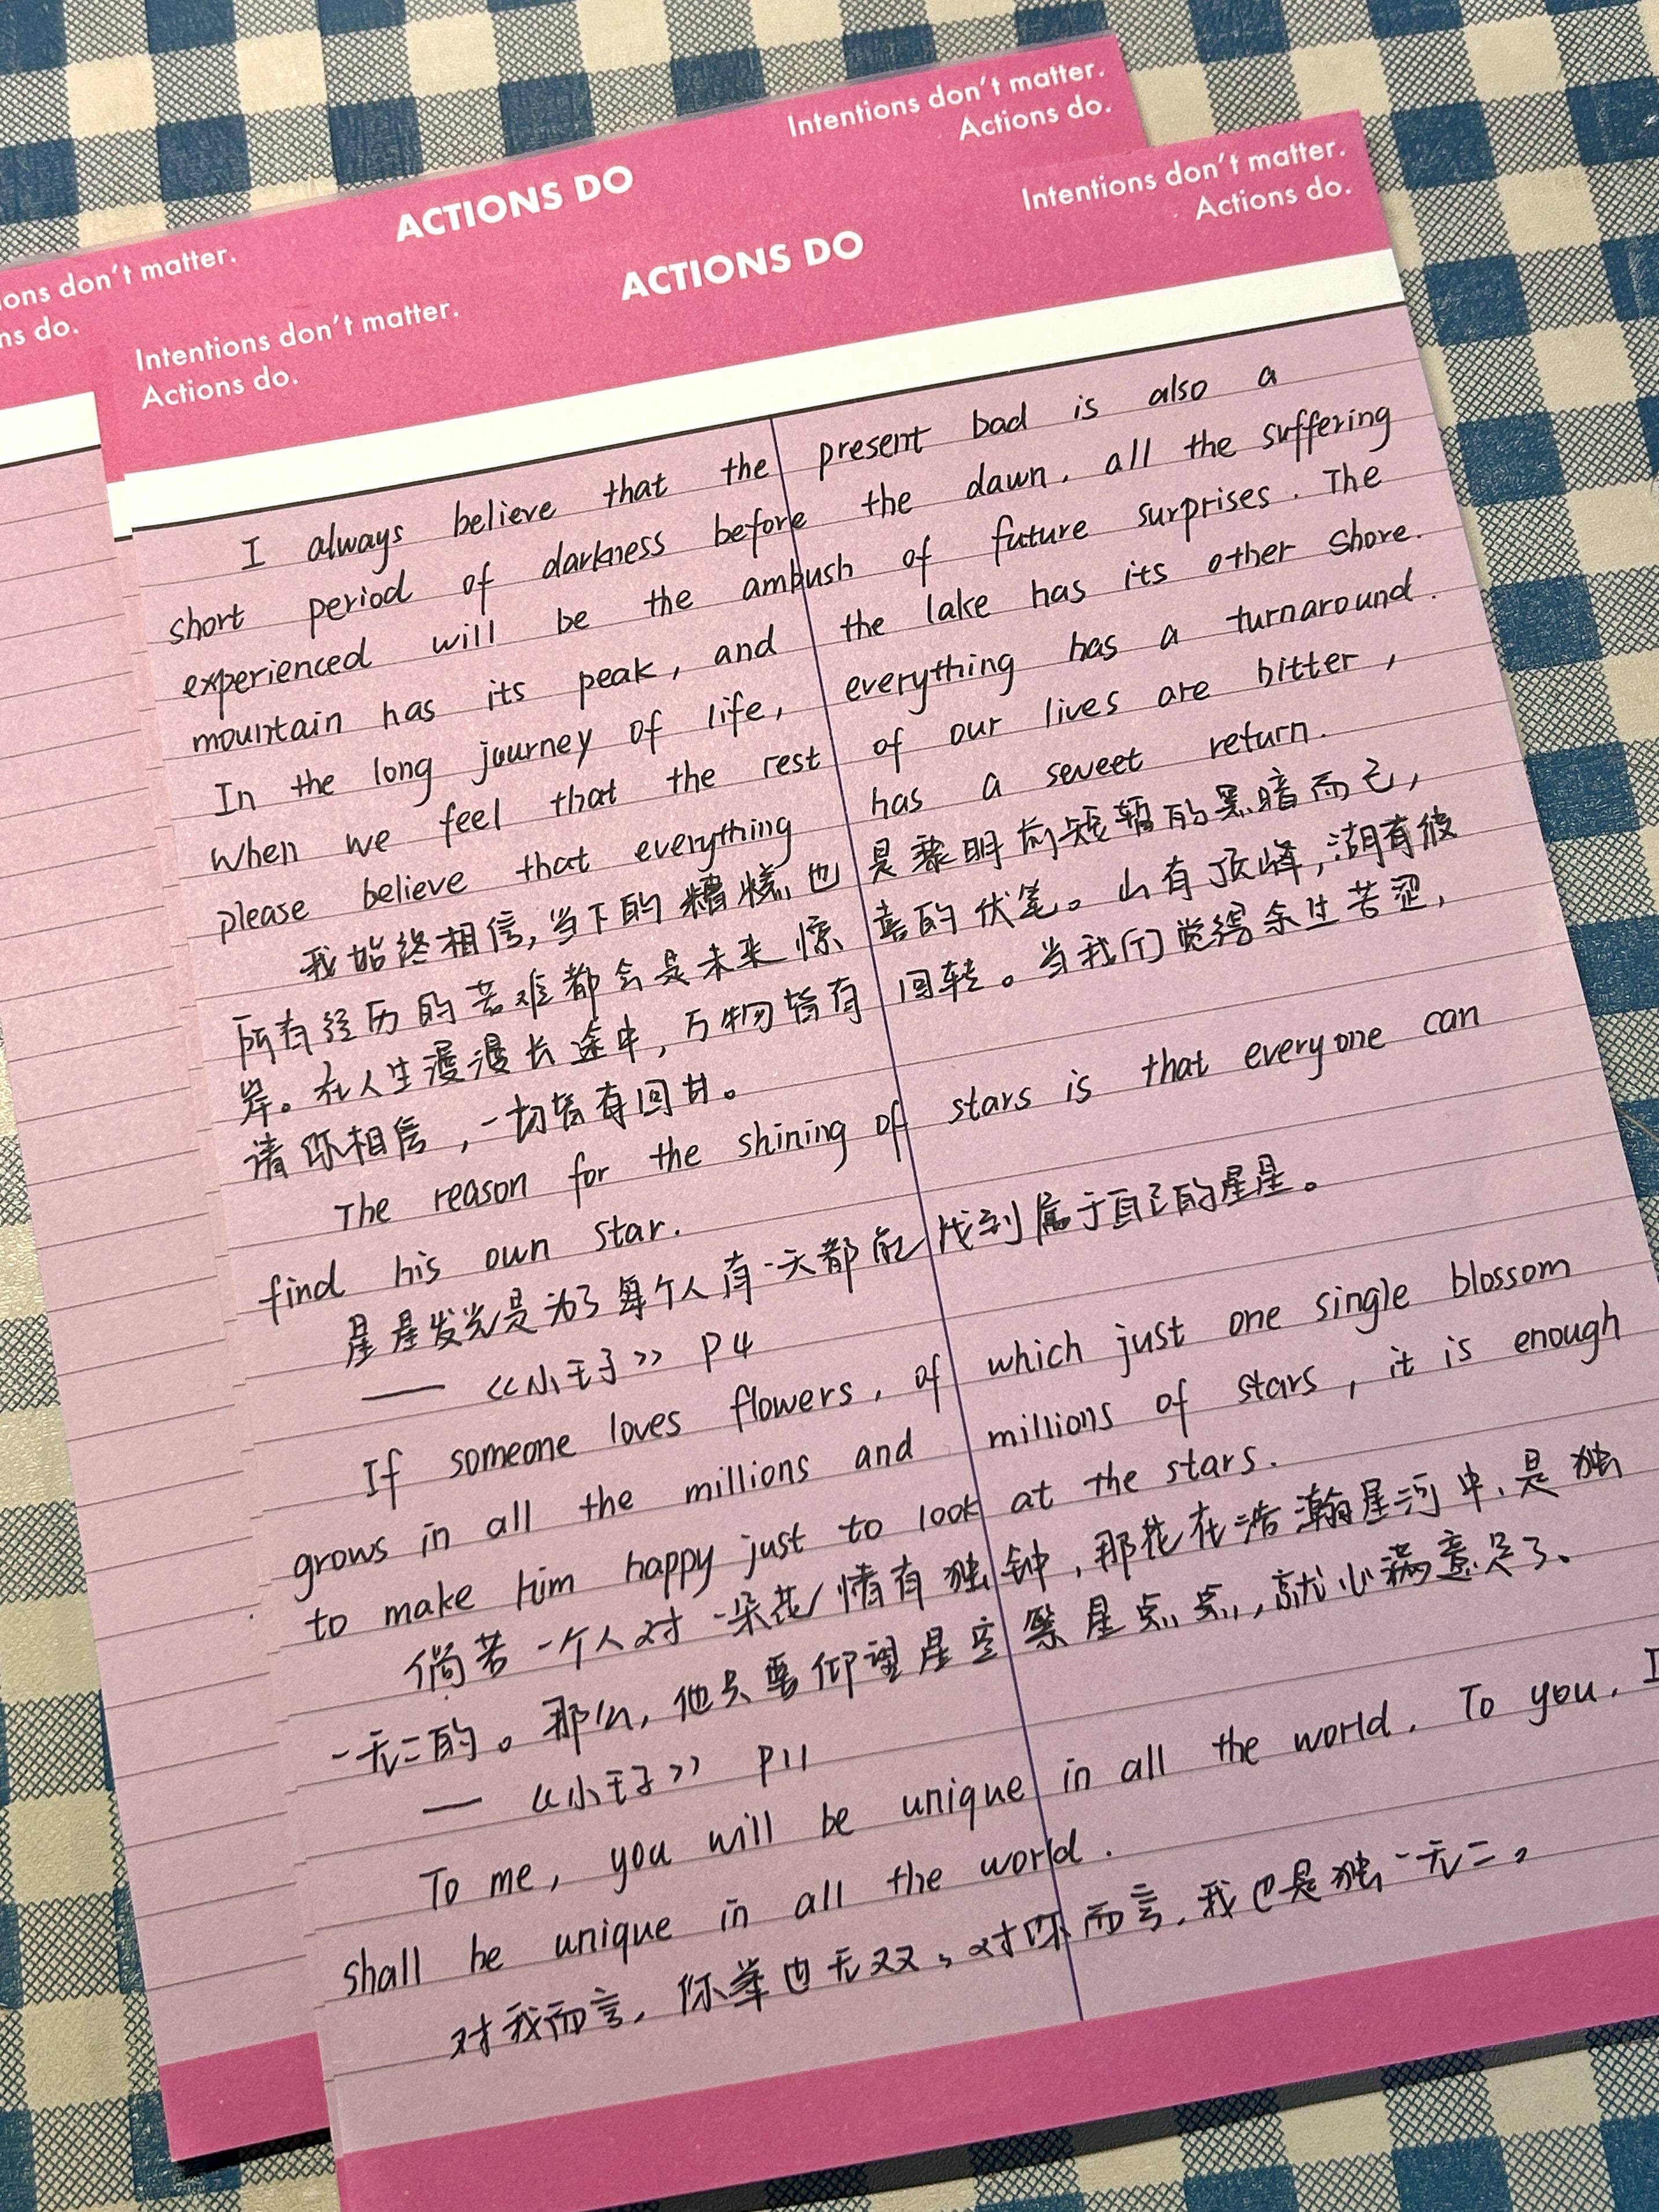 Intentions don't matter.
Actions do.
ACTIONS DO
ions don't matter.
ns do.
Intentions don't matter.
Actions do.
ACTIONS DO
Intentions don't matter.
Actions do.
I always believe that the present bad is also a
short period of darkness before the dawn, all the suffering
experienced will be the ambush of future surprises. The
mountain has its peak, and the lake has its other shore.
In the long journey of life, everything has a turnaround.
When we feel that the rest of our lives are bitter,
please believe that everything has a sweet return.
我始终相信,当下的糟糕也是黎明前短暂的黑暗而已,
所有经历的苦难都会是未来惊喜的伏笔。山有顶峰,湖有彼
岸。在人生漫漫长途中,万物皆有回转。当我们觉得余生苦涩,
请你相信,一切皆有回甘。
The reason for the shining of stars is that everyone can
find his own star.
星星发光是为了每个人有一天都能找到属于自己的星星。
——《小王子》 P4
If someone loves flowers, of which just one single blossom
grows in all the millions and millions of stars, it is enough
to make him happy just to look at the stars.
倘若一个人对一朵花情有独钟,那花在浩瀚星河中,是独
一无二的。那么,他只要仰望星空繁星点点,就心满意足了、
—《小王子》 P11
To me, you will be unique in all the world. To you, I
shall be unique in all the world.
对我而言,你举世无双,对你而言,我也是独一无二。